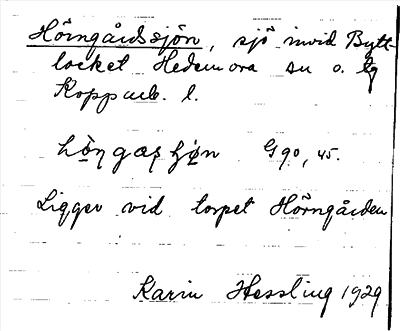 Hörngårdssjön, sjö invid Bytt-
locket Hedemora sn o. lg
Kopparb. l.
G90, 45.
Ligger vid torpet Hörngården
Karin Hessling 1929